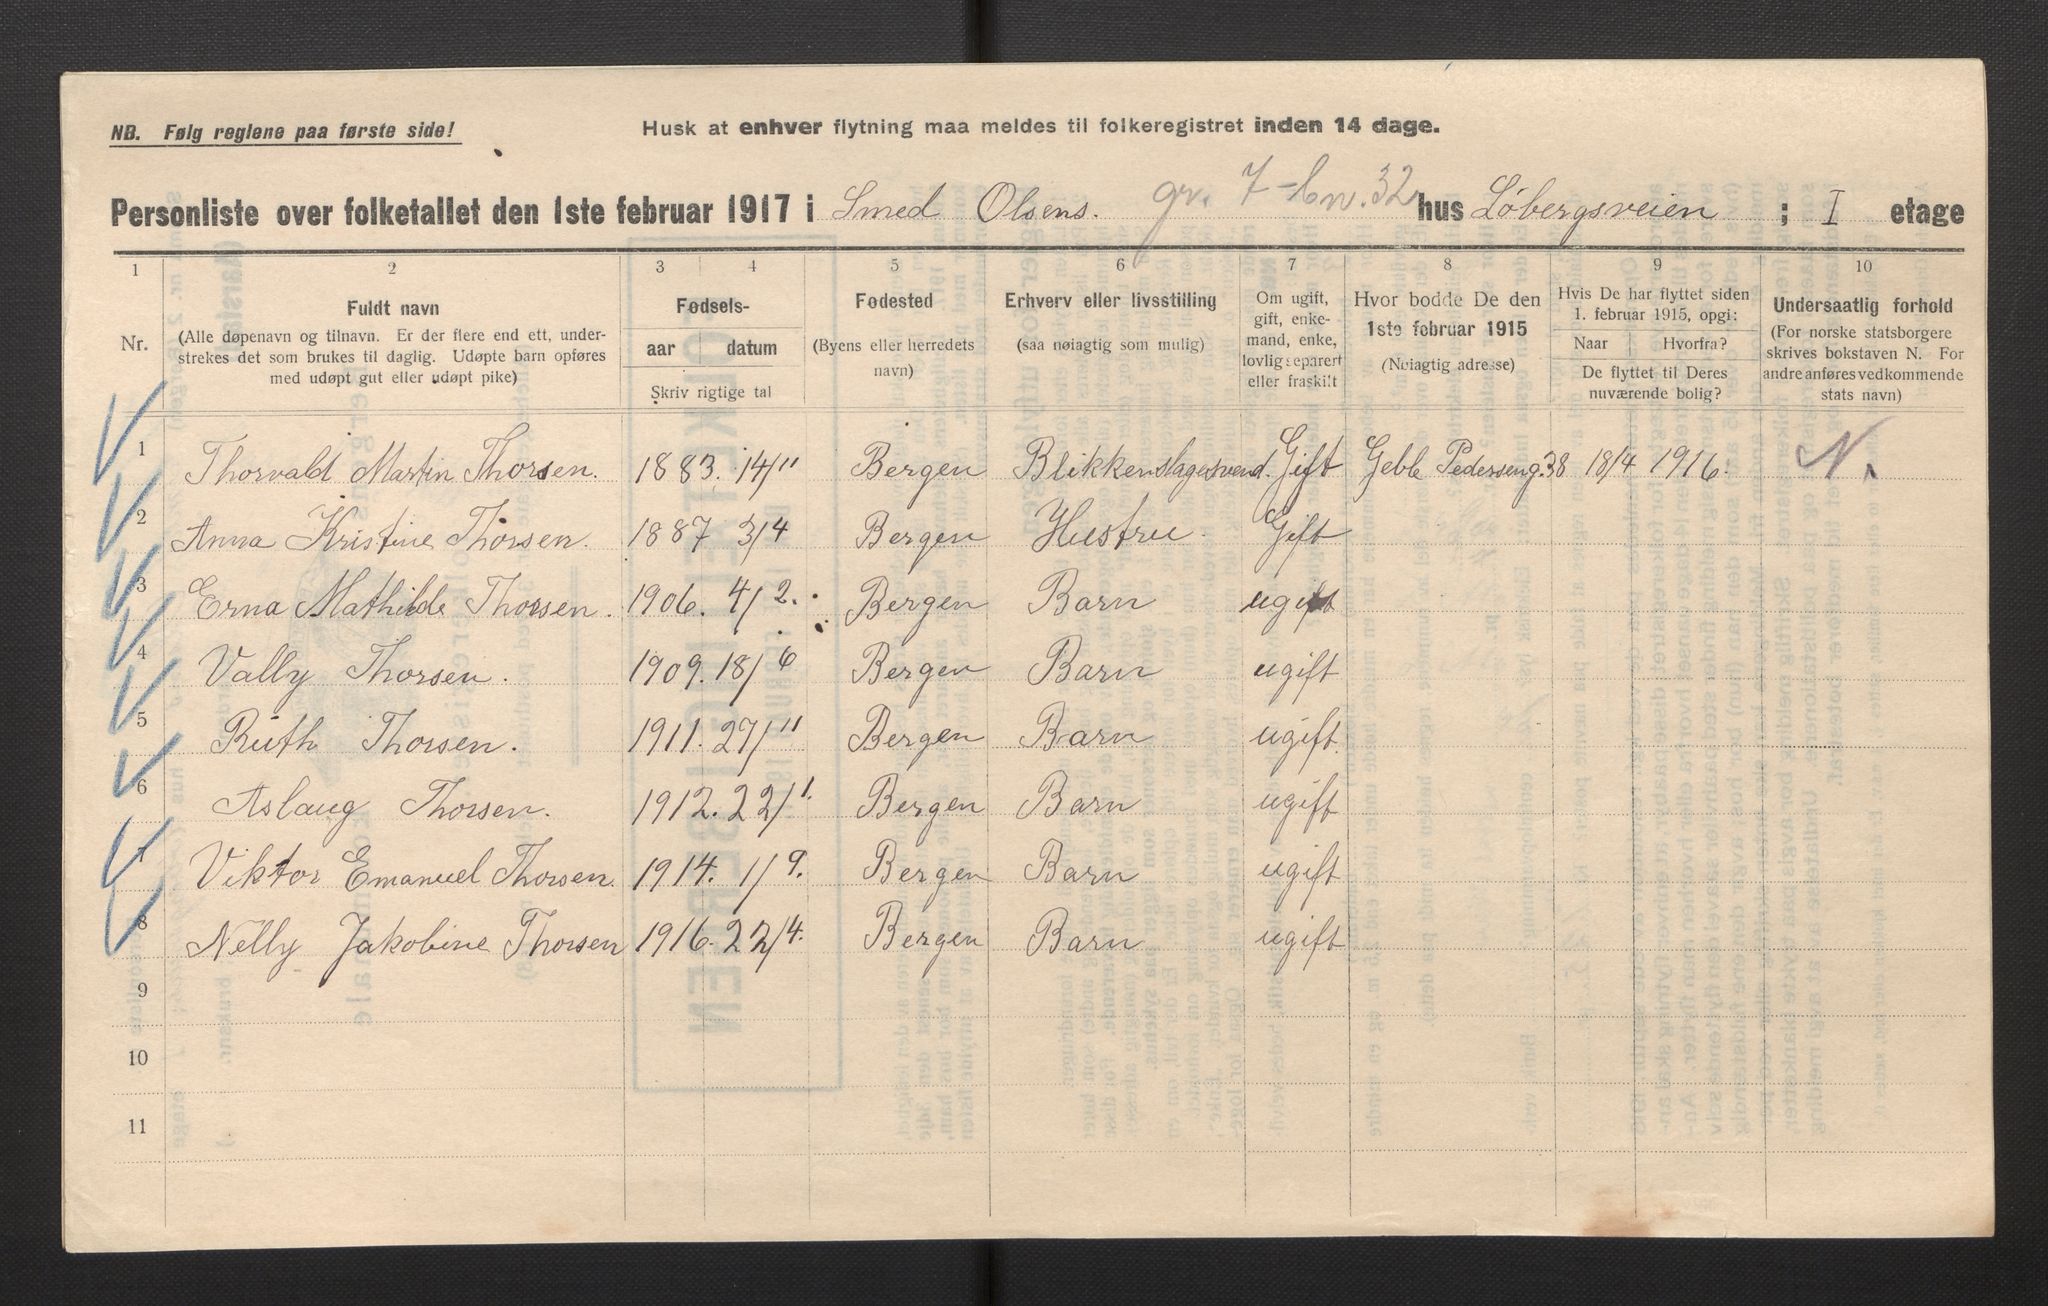 NB. Følg reglene paa første side!
Husk at enhver flytning maa meldes til folkeregistret inden 14 dage.
gr. 7 - bn. 32
Personliste over folketallet den 1ste februar 1917 i Smed Olsens. hus Løbergsveien ; I etage
1 2 3 4 5 6 7 8 9 10
Nr.
Fuldt navn
(Alle døpenavn og tilnavn. Er der flere end ett, under-
strekes det som brukes til daglig. Udøpte barn opføres
med udøpt gut eller udøpt pike)
Fødsels-
aar datum
Skriv rigtige tal
Fødested
(Byens eller herredets
navn)
Erhverv eller livsstilling
(saa nøiagtig som mulig)
Om ugift,
gift, enke-
mand, enke,
lovlig separert
eller fraskilt
Hvor bodde De den
1ste februar 1915
(Nøiagtig adresse)
Hvis De har flyttet siden
1. februar 1915, opgi:
Naar Hvorfra?
De flyttet til Deres
nuværende bolig?
Undersaatlig forhold
(For norske statsborgere
skrives bokstaven N. For
andre anføres vedkommende
stats navn)
1 Thorvald Martin Thorsen. 1883. 14/11 Bergen Blikkenslagersvend. Gift Geble Pedersensg. 38 18/4 1916. N.
2 Anna Kristine Thorsen. 1887 3/4 Bergen Hustru. Gift
3 Erna Mathilde Thorsen. 1906. 4/2. Bergen Barn ugift
4 Vally Thorsen. 1909. 18/6 Bergen Barn ugift
5 Ruth Thorsen. 1911. 27/11 Bergen Barn ugift.
6 Aslaug Thorsen. 1912. 22/1. Bergen Barn ugift
7 Viktor Emanuel Thorsen. 1914. 1/9. Bergen Barn ugift
8 Nelly Jakobine Thorsen 1916. 22/4. Bergen Barn ugift
9
10
11